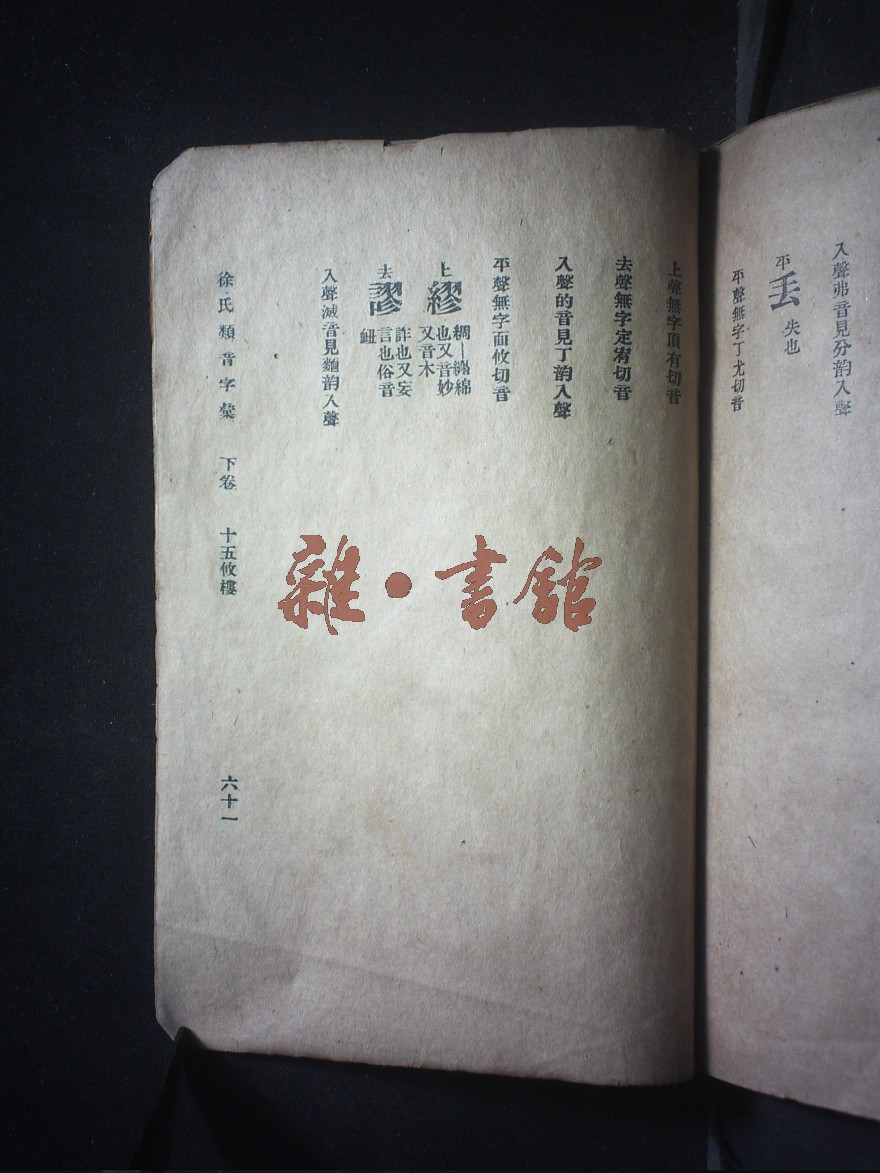 入聲弗音見分韵入聲
平
丢 失也
平聲無字丁尤切音
上聲無字頂有切音
去聲無字定宥切音
入聲的音見丁韵入聲
平聲無字面攸切音
上
繆 綢—纏綿
也又音妙
又音木
去
謬 詐也又妄
言也俗音
鈕
入聲滅音見麵韵入聲
徐氏類音字彙 下卷 十五攸樓 六十一
雜·書館